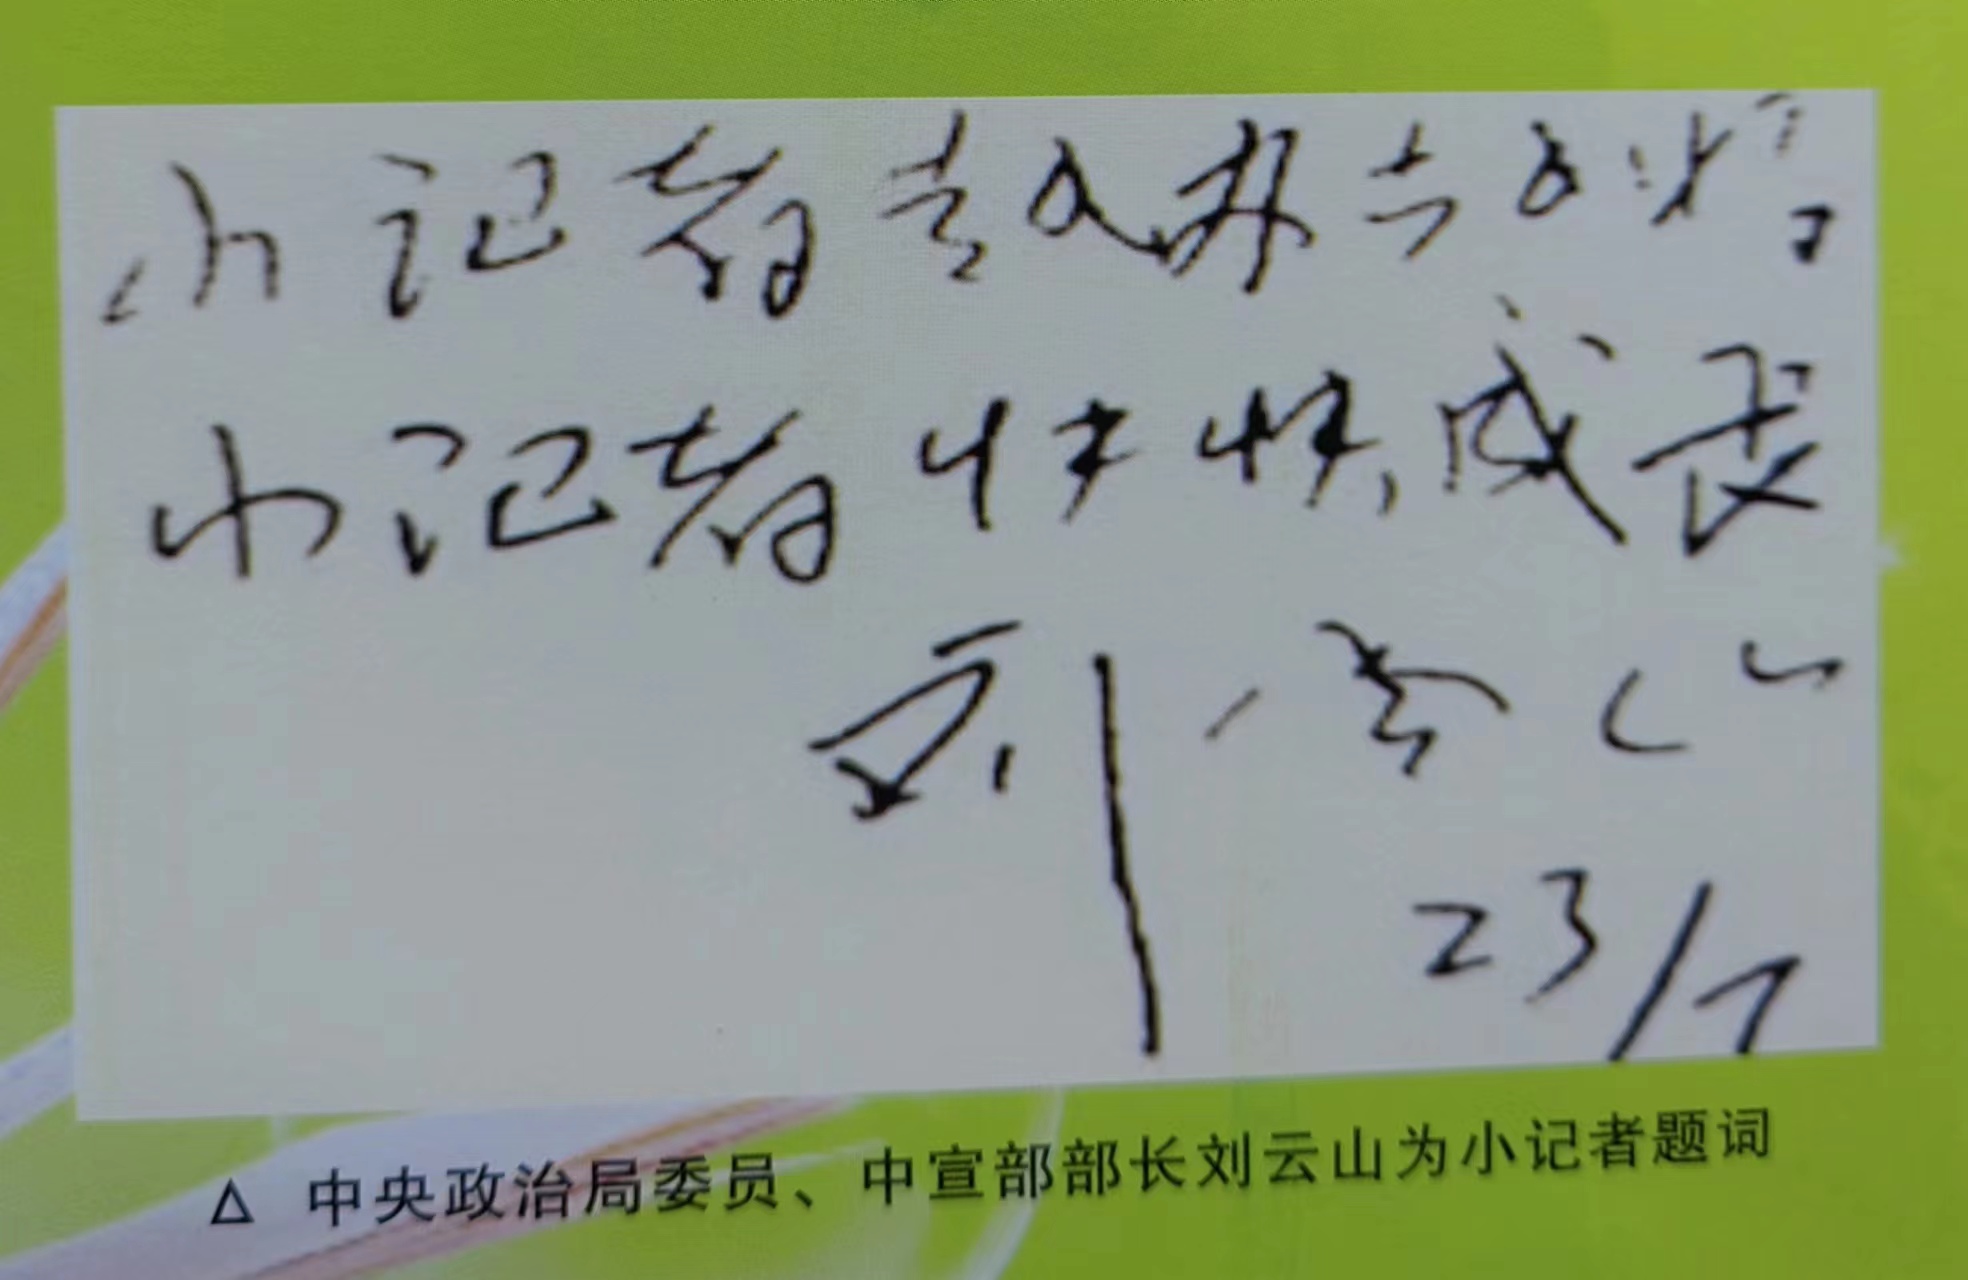 小记者
小记者快快成长
刘云山
23/7
△ 中央政治局委员、中宣部部长刘云山为小记者题词